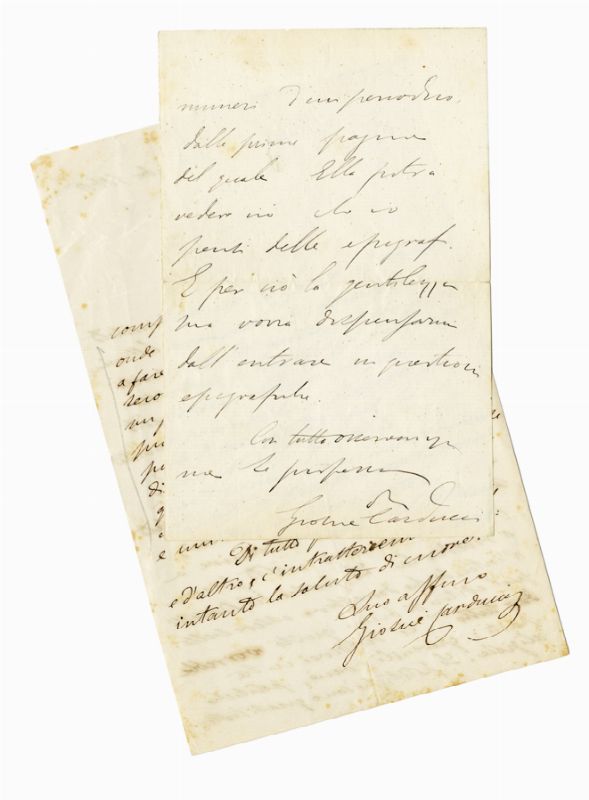 numeri d'un periodico,
dalle prime pagine
del quale Ella potrà
vedere ciò che io
pensi delle epigraf.
E per ciò la gentilezza
sua vorrà dispensarmi
dall'entrare in questioni
epigrafiche.
Con tutta osservanza
me Le professo
Giosue Carducci
comp
onde
a fare
sero
di
e
Di tutto
e d'altro, c'intratterremo
intanto la saluto di cuore.
Suo affmo
Giosuè Carducci